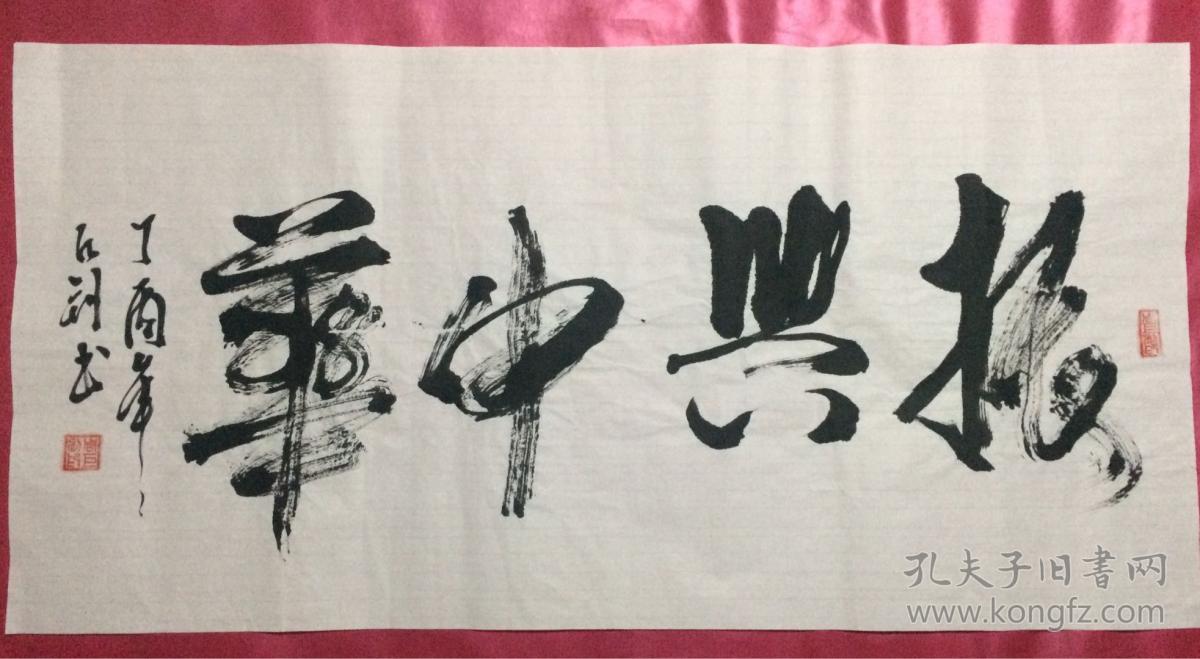 振興中華
丁酉年
書
孔夫子旧書网
www.kongfz.com